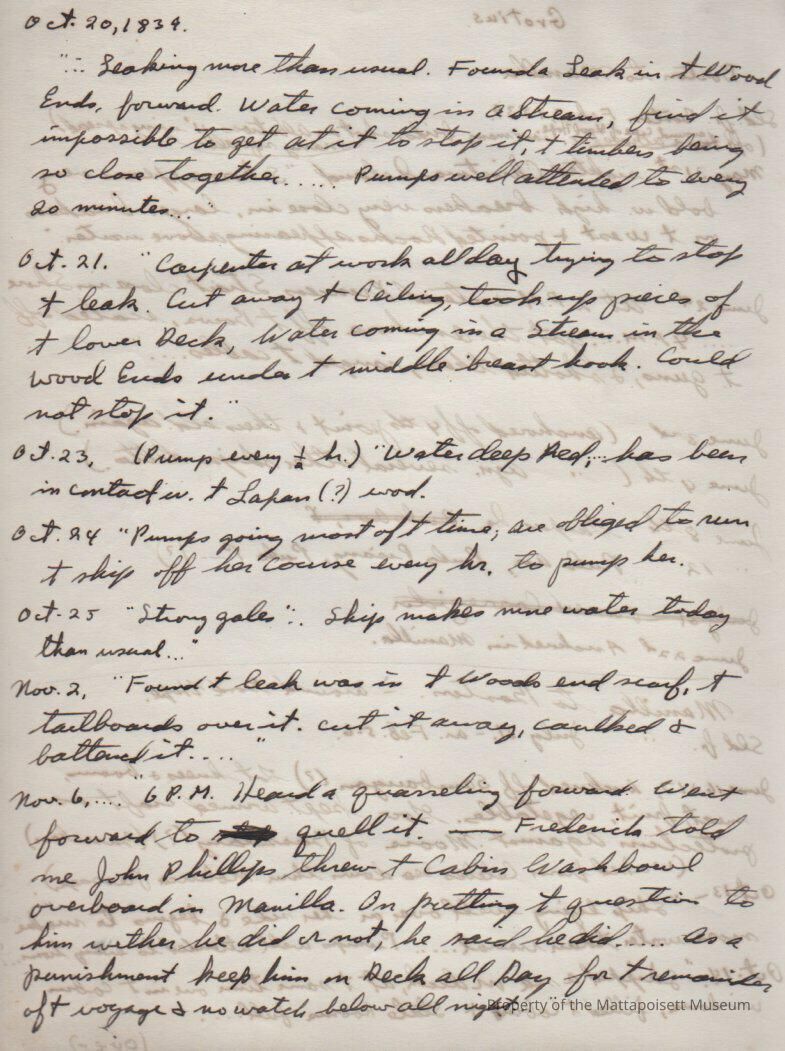 Oct. 20, 1839.
"... Leaking more than usual. Found a Leak in t Wood
Ends, forward. Water coming in a Stream, find it
impossible to get at it to stop it, t timbers being
so close together..... Pumps well attended to every
20 minutes..."
Oct. 21. "Carpenter at work all day trying to stop
t leak. Cut away t Ceiling, took up pieces of
t lower Deck, Water coming in a Stream in the
Wood Ends under t middle breast hook. Could
not stop it."
Oct. 23, (Pump every ½ hr.) "Water deep Red, ... has been
in contact w. t Lapan (?) wood.
Oct. 24 "Pumps going most of t time; are obliged to run
t ship off her course every hr. to pump her.
Oct. 25 "Strong gales".. Ship makes more water today
than usual..."
Nov. 2, "Found t leak was in t Woods end scarf, t
tailboards over it. Cut it away, caulked &
battened it...."
Nov. 6,.... "6 P.M. Heard a quarreling forward. Went
forward to quell it. — Frederick told
me John Phillips threw t Cabin Washbowl
overboard in Manilla. On putting t question to
him wether he did or not, he said he did.... As a
punishment keep him on Deck all Day for t remainder
of t voyage & no watch below all night.
Property of the Mattapoisett Museum